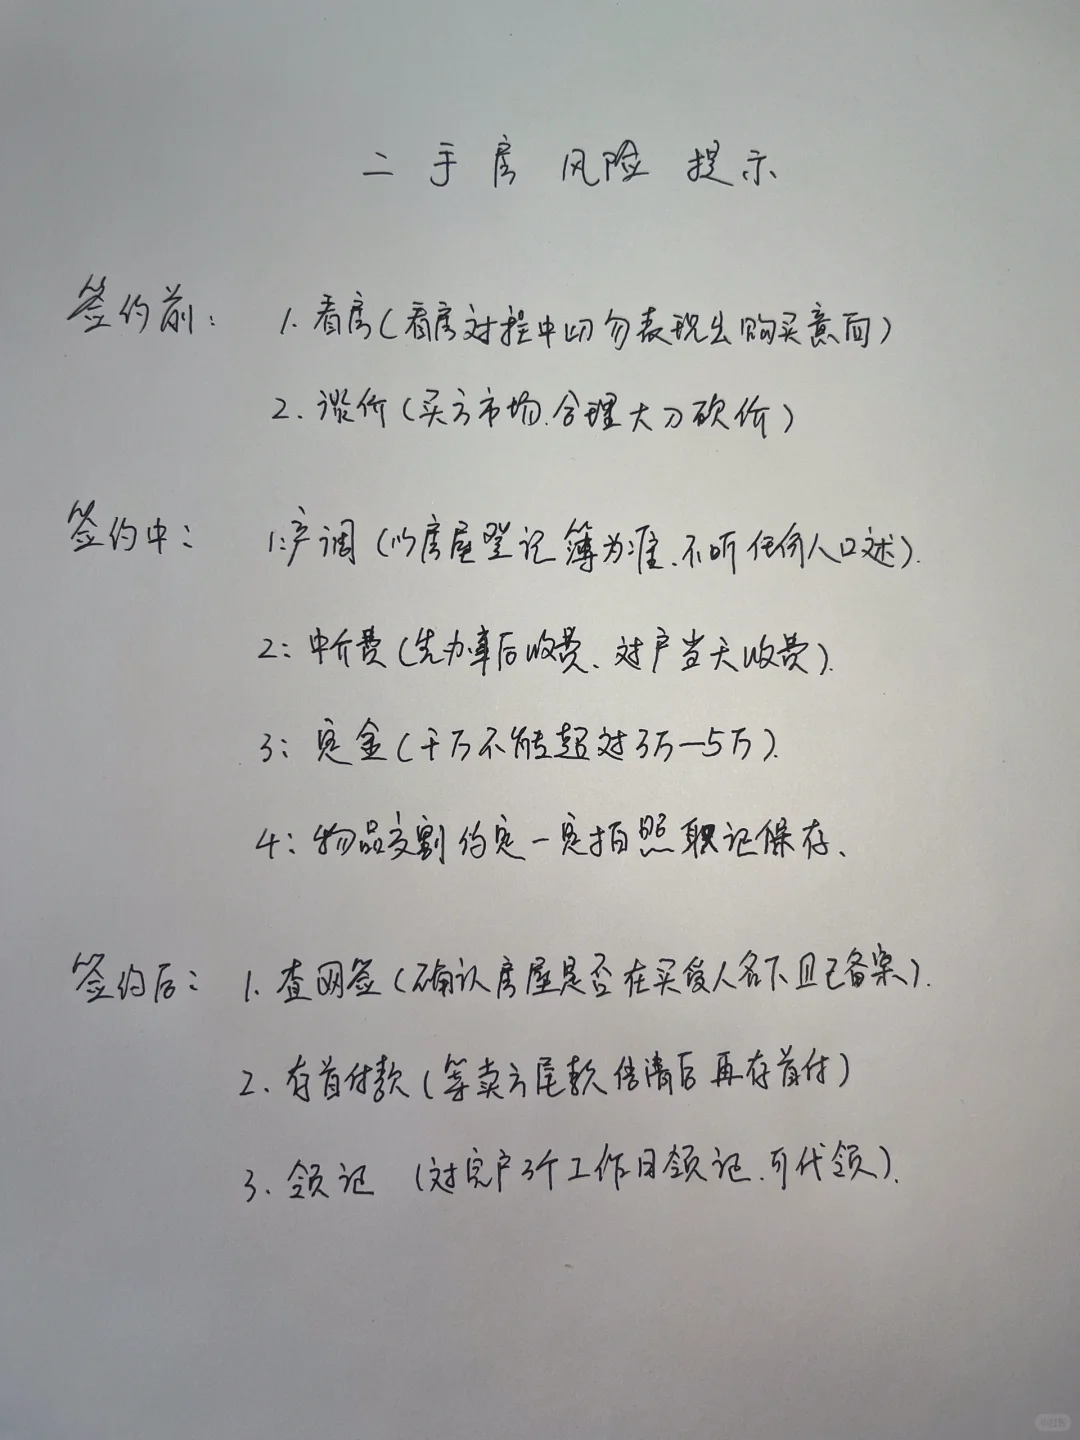 二手房风险提示
签约前: 1. 看房(看房过程中切勿表现出购买意向)
2. 谈价(买方市场、合理大刀砍价)
签约中: 1: 产调(以房屋登记簿为准、不听任何人口述).
2: 中介费(先办事后收费、过户当天收费).
3: 定金(千万不能超过3万—5万).
4: 物品交割约定一定拍照取证保存、
签约后: 1. 查网签(确认房屋是否在买受人名下且已备案).
2. 存首付款(等卖方尾款结清后再存首付)
3. 领证 (过完户3个工作日领证、可代领).
小红书